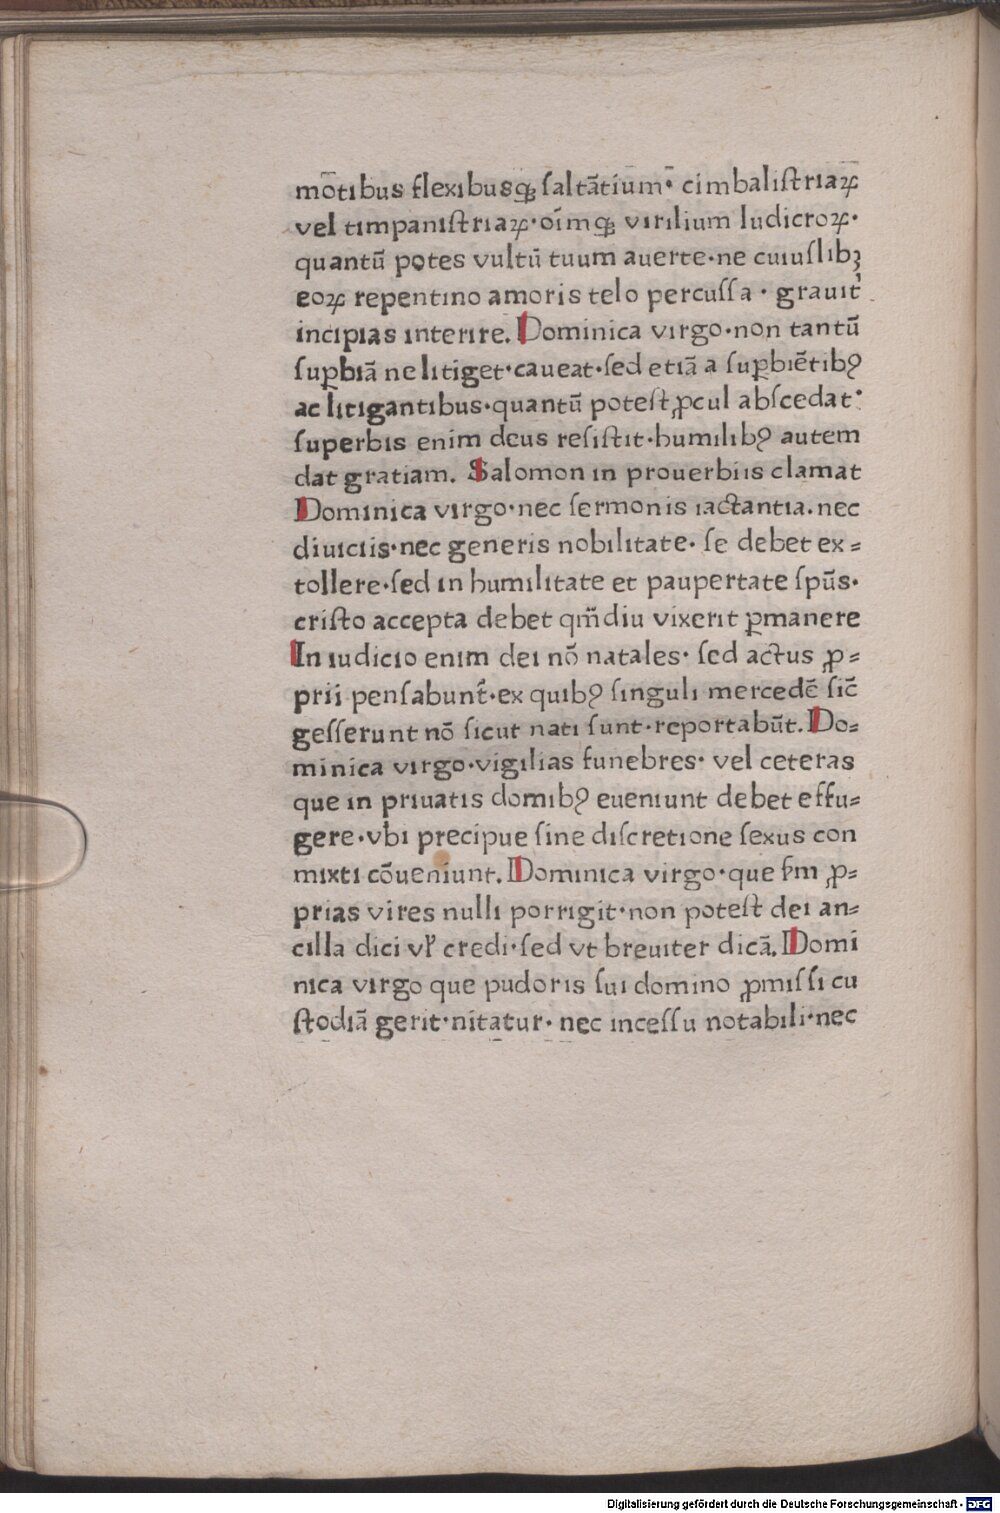 mōtibus flexibusqꝫ ſaltātium· cimbaliſtriaꝝ
vel timpaniſtriaꝝ·oīmqꝫ virilium ludicroꝝ·
quantū potes vultū tuum auerte·ne cuiuſlibꝫ
eoꝝ repentino amoris telo percuſſa · grauit᷑
incipias interire. Dominica virgo·non tantū
ſuꝑbiā ne litiget·caueat·ſed etiā a ſuꝑbiētibꝰ
ac litigantibus·quantū poteſt ꝓcul abſcedat·
ſuperbis enim deus reſiſtit·humilibꝰ autem
dat gratiam. Salomon in prouerbiis clamat
Dominica virgo·nec ſermonis iactantia·nec
diuiciis·nec generis nobilitate· ſe debet ex⸗
tollere·ſed in humilitate et paupertate ſpūs·
criſto accepta debet qm̄diu vixerit ꝑmanere
In iudicio enim dei nō natales· ſed actus ꝓ⸗
prii penſabunt᷑·ex quibꝰ ſinguli mercedē ſic̄
geſſerunt nō ſicut nati ſunt·reportabūt. Do⸗
minica virgo·vigilias funebres· vel ceteras
que in priuatis domibꝰ eueniunt debet effu⸗
gere·vbi precipue ſine diſcretione ſexus con
mixti cōueniunt. Dominica virgo·que ſm̄ ꝓ⸗
prias vires nulli porrigit·non poteſt dei an⸗
cilla dici vl̓ credi·ſed vt breuiter dicā. Domi
nica virgo que pudoris ſui domino ꝓmiſſi cu
ſtodiā gerit·nitatur· nec inceſſu notabili·nec
Digitalisierung gefördert durch die Deutsche Forschungsgemeinschaft - DFG